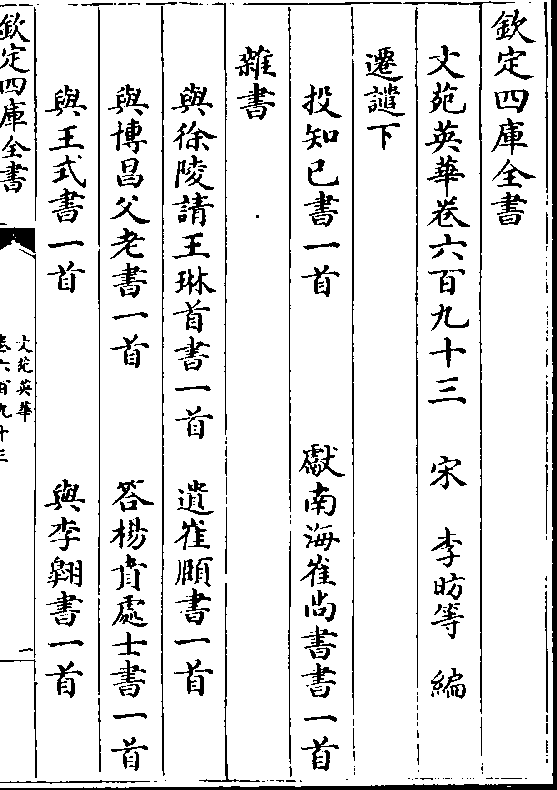 欽定四庫全書
文苑英華卷六百九十三　宋　李昉等　編
遷謫下
投知己書一首　獻南海崔尚書書一首
雜書
與徐陵請王琳首書一首　遺崔頤書一首
與博昌父老書一首　答楊賁處士書一首
與王式書一首　與李翺書一首
欽定四庫全書
文苑英華
卷六百九十三
一